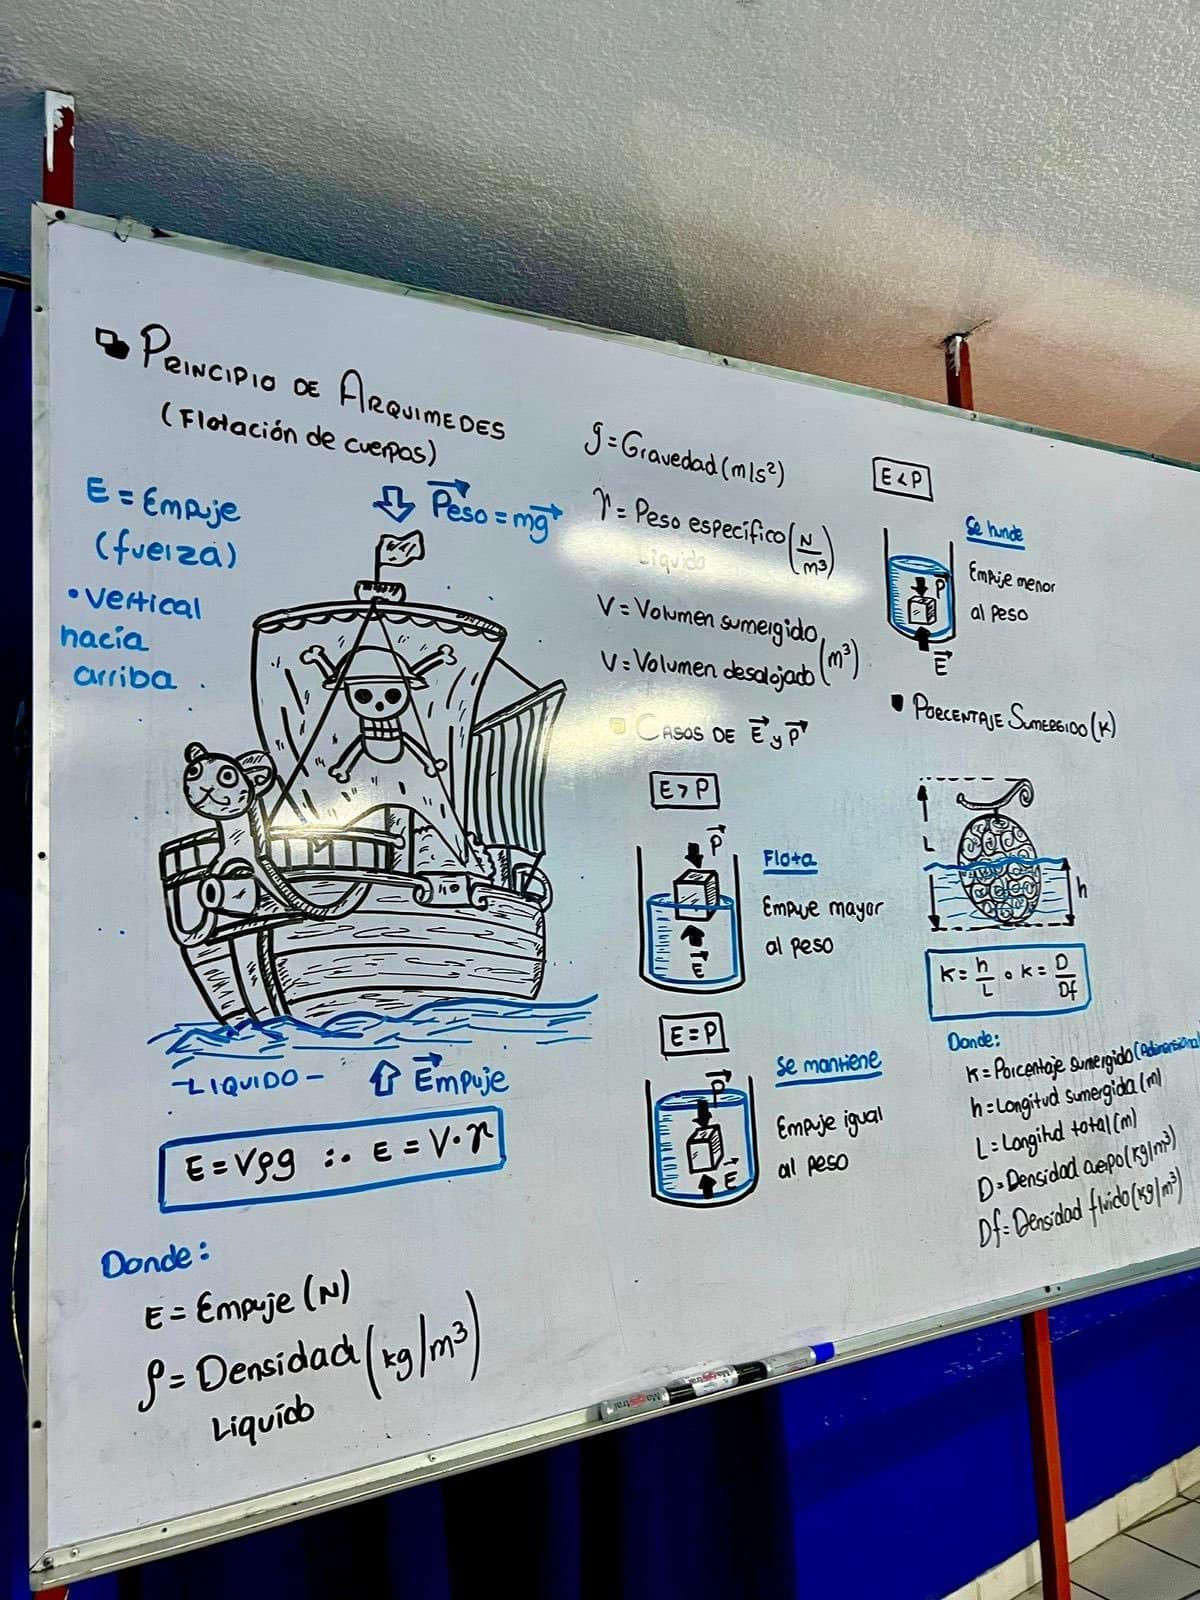 PRINCIPIO DE ARQUIMEDES
(Flotación de cuerpos)
E = Empuje
(fuerza)
• Vertical
hacia
arriba.
Peso = mg
-LIQUIDO-
Empuje
E = Vρg ∴ E = V·γ
Donde:
E = Empuje (N)
ρ = Densidad (kg/m³)
Liquido
g = Gravedad (m/s²)
γ = Peso específico (N/m³)
Liquido
V = Volumen sumergido
V = Volumen desalojado (m³)
CASOS DE E y P
E > P
P
E
Flota
Empuje mayor
al peso
E = P
P
E
Se mantiene
Empuje igual
al peso
E < P
P
E
Se hunde
Empuje menor
al peso
PORCENTAJE SUMERGIDO (K)
L
h
K = h/L o K = D/Df
Donde:
K = Porcentaje sumergido (Adimensional
h = Longitud sumergida (m)
L = Longitud total (m)
D = Densidad cuerpo (kg/m³)
Df = Densidad fluido (kg/m³)
Magistral
Magistral